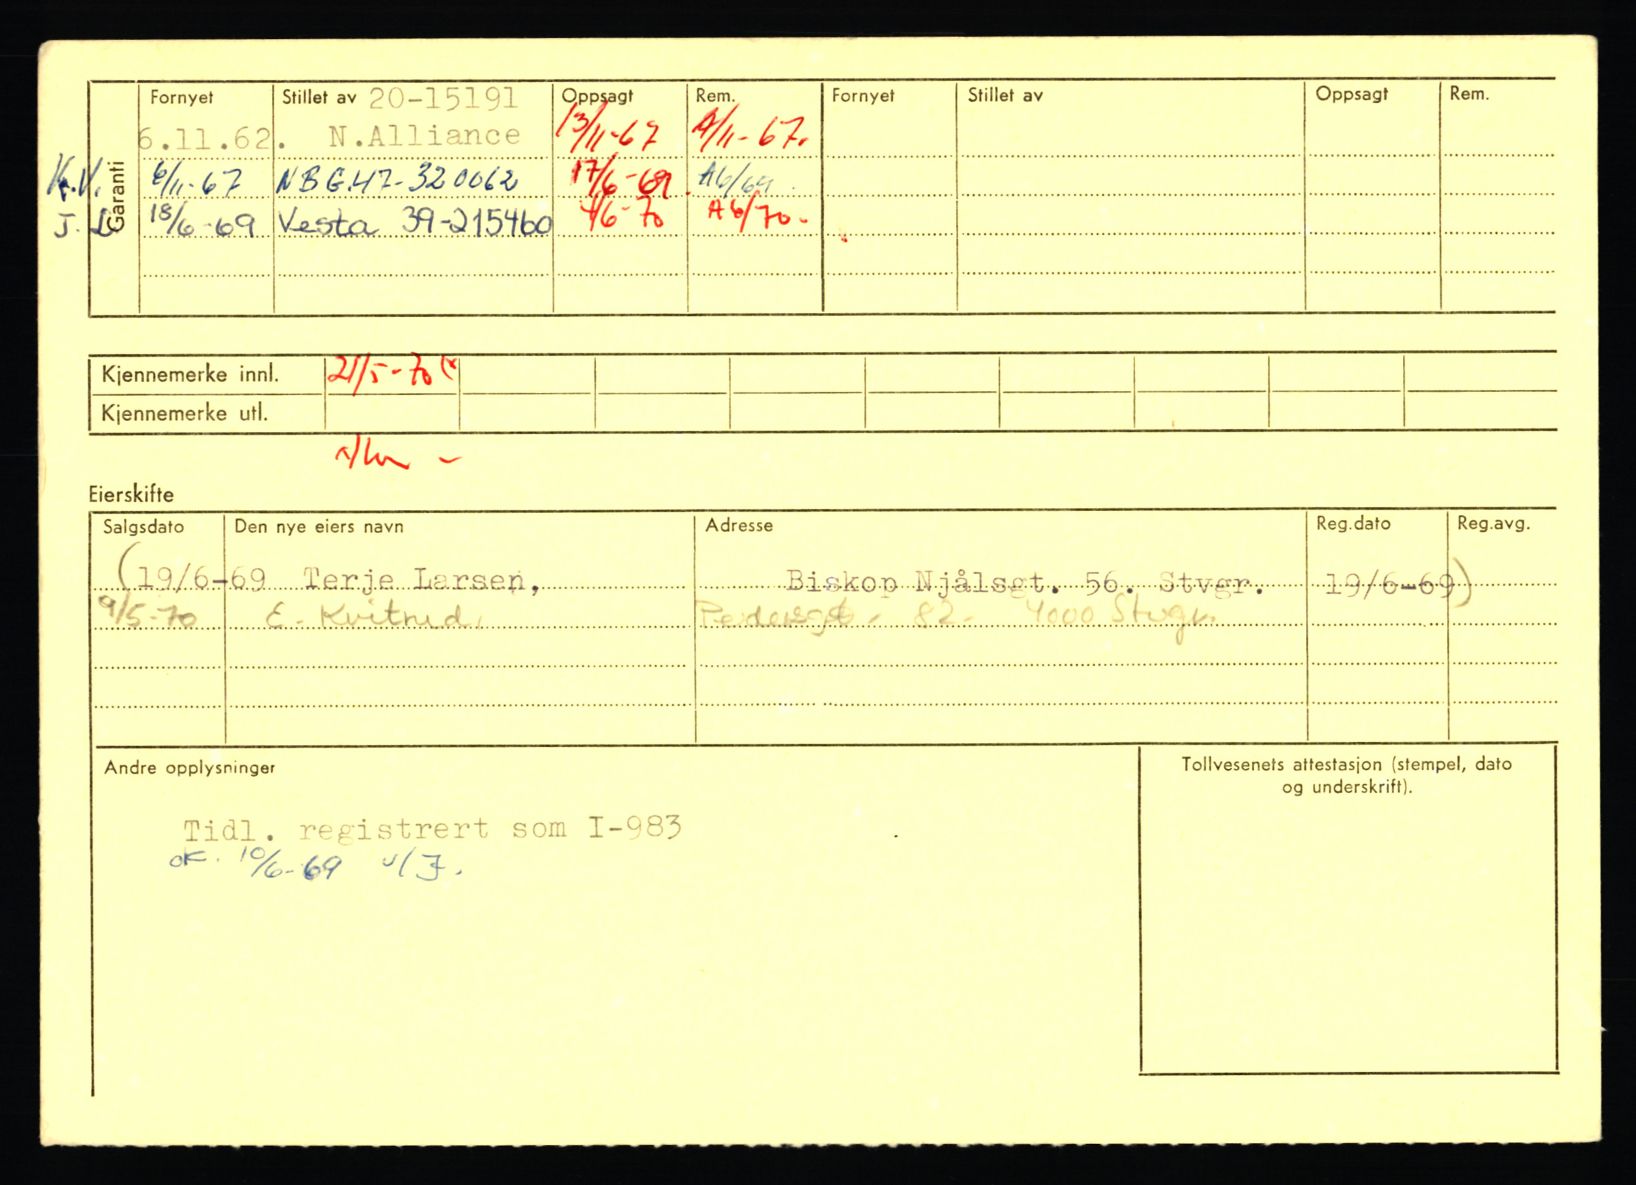 Fornyet Stillet av 20-15191 Oppsagt Rem. Fornyet Stillet av Oppsagt Rem.
6.11.62. N.Alliance 13/11-67 A/11-67.
Garanti
K.V. 6/11-67 NBG.47-320062 17/6-69. A6/69.
J. L 18/6-69 Vesta 39-215460 4/6-70 A6/70-.
Kjennemerke innl. 21/5-70
Kjennemerke utl.
Eierskifte
Salgsdato Den nye eiers navn Adresse Reg.dato Reg.avg.
(19/6-69 Terje Larsen, Biskop Njålsgt. 56. Stvgr. 19/6-69)
9/5-70 E. Kvitrud, Pedersgt. 82. 4000 Stvgr.
Andre opplysninger
Tollvesenets attestasjon (stempel, dato
og underskrift).
Tidl. registrert som I-983
OK. 10/6-69